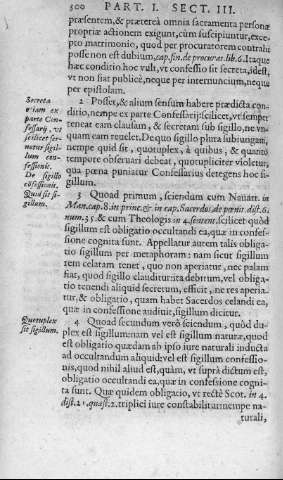 500 PART. I. SECT. III.
præsentem, & præterea omnia sacramenta personæ
propriæ actionem exigunt, cum suscipiuntur, exce-
pto matrimonio, quod per procuratorem contrahi
posse non est dubium, cap. fin. de procurat. lib. 6. Itaque
hæc conditio hoc vult, vt confessio sit secreta, idest,
vt non fiat publicè, neque per internuncium, neque
per epistolam.
Secreta
etiam ex
parte Con-
fessarij, vt
scilicet ser-
uetur sigil-
lum con-
fessionis.
2 Potest, & alium sensum habere prædicta con-
ditio, nempe ex parte Confessarij scilicet, vt semper
teneat eam clausam, & secretam sub sigillo, ne vn-
quam eam reuelet. De quo sigillo plura subiungam,
nempe quid sit, quotuplex, à quibus, & quanto
tempore obseruari debeat, quotupliciter violetur,
qua pœna puniatur Confessarius detegens hoc si-
gillum.
De sigillo
confessionis.
Quid sit si-
gillum.
3 Quoad primum, sciendum cum Nauarr. in
Man. cap. 8. in princ. & in cap. Sacerdos, de pœnit. dist. 6.
num. 35. & cum Theologis in 4. sentent. scilicet quòd
sigillum est obligatio occultandi ea, quæ in confes-
sione cognita sunt. Appellatur autem talis obliga-
tio sigillum per metaphoram: nam sicut sigillum
rem celatam tenet, quo non aperiatur, nec palam
fiat, quod sigillo clauditur: ita debitum, vel obliga-
tio tenendi aliquid secretum, efficit, ne res aperia-
tur, & obligatio, quam habet Sacerdos celandi ea,
quæ in confessione audiuit, sigillum dicitur.
Quotuplex
sit sigillum.
4 Quoad secundum verò sciendum, quòd du-
plex est sigillum: nam vel est sigillum naturæ, quod
est obligatio quædam ab ipso iure naturali inducta
ad occultandum aliquid: vel est sigillum confessio-
nis, quod nihil aliud est, quàm, vt suprà dictum est,
obligatio occultandi ea, quæ in confessione cogni-
ta sunt. Quæ quidem obligatio, vt rectè Scot. in 4.
dist. 21. quæst. 2. triplici iure constabilitur: nempe na-
turali,